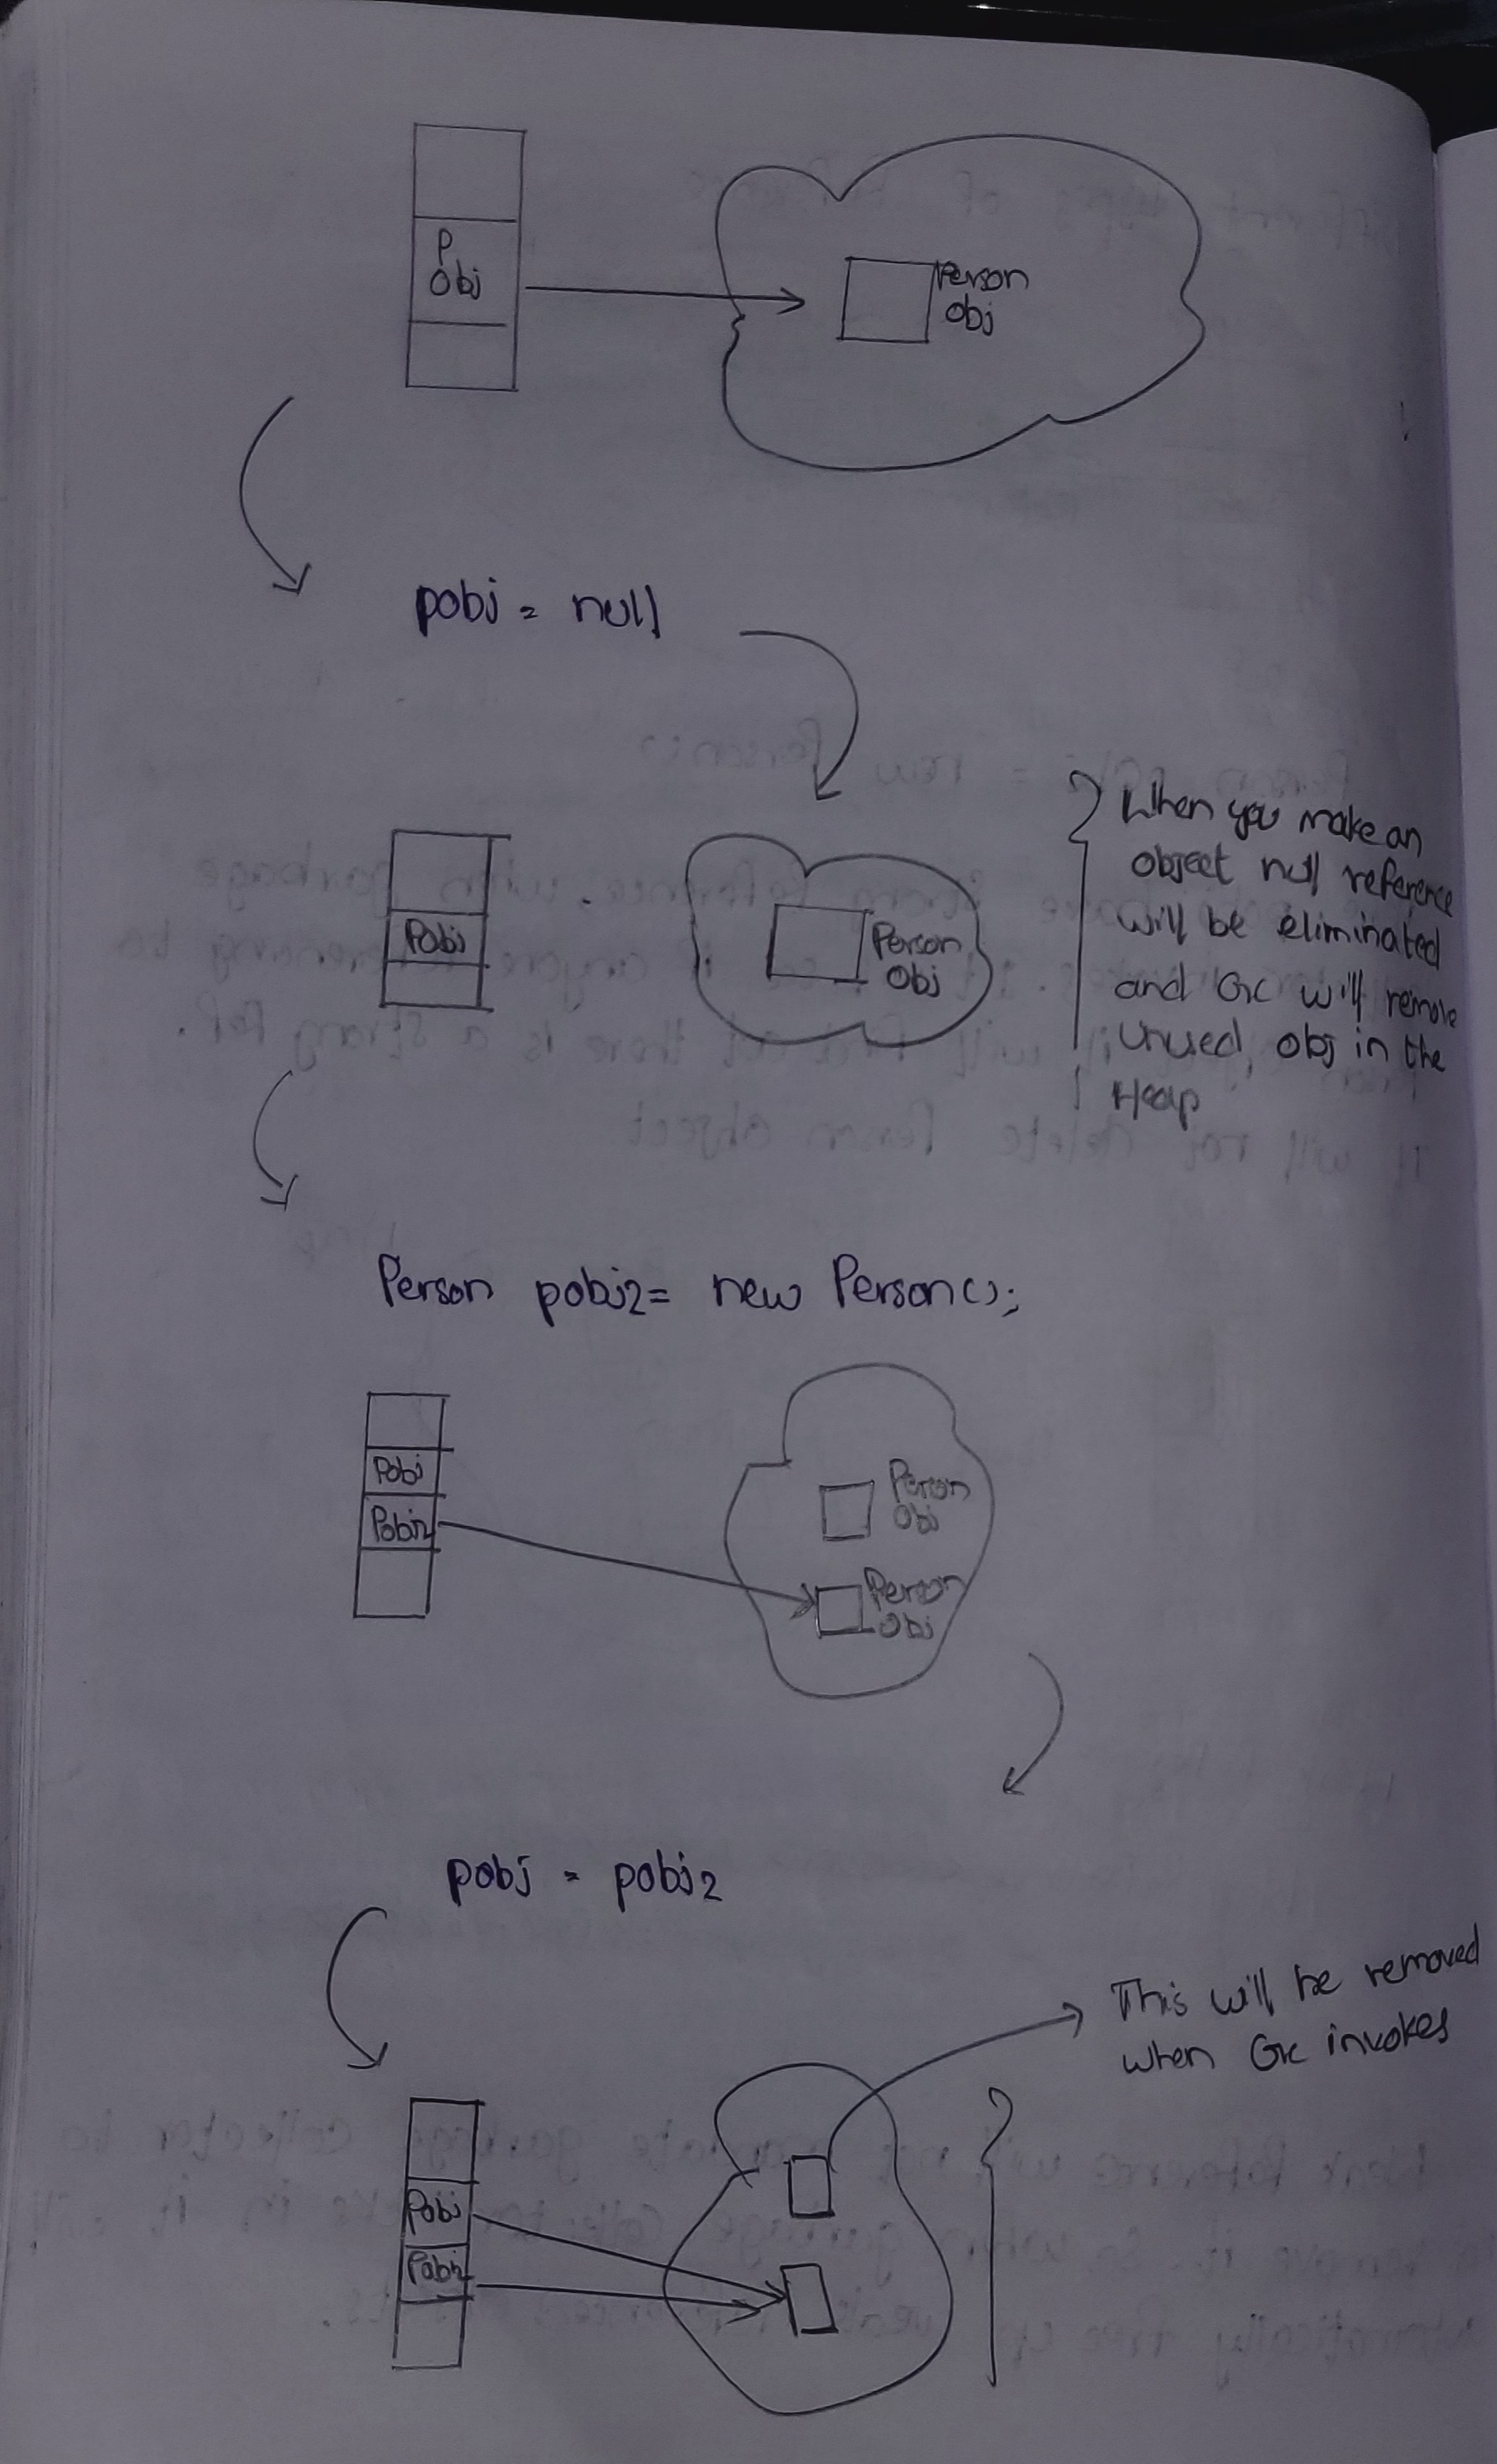 P
Obj
Person
Obj
pobj = null
Pobj
Person
Obj
When you make an
object null reference
will be eliminated
and GC will remove
unused obj in the
Heap
Person pobj2 = new Person();
Pobj
Pobj2
Person
Obj
Person
Obj
pobj = pobj2
This will be removed
when GC invokes
Pobj
Pobj2